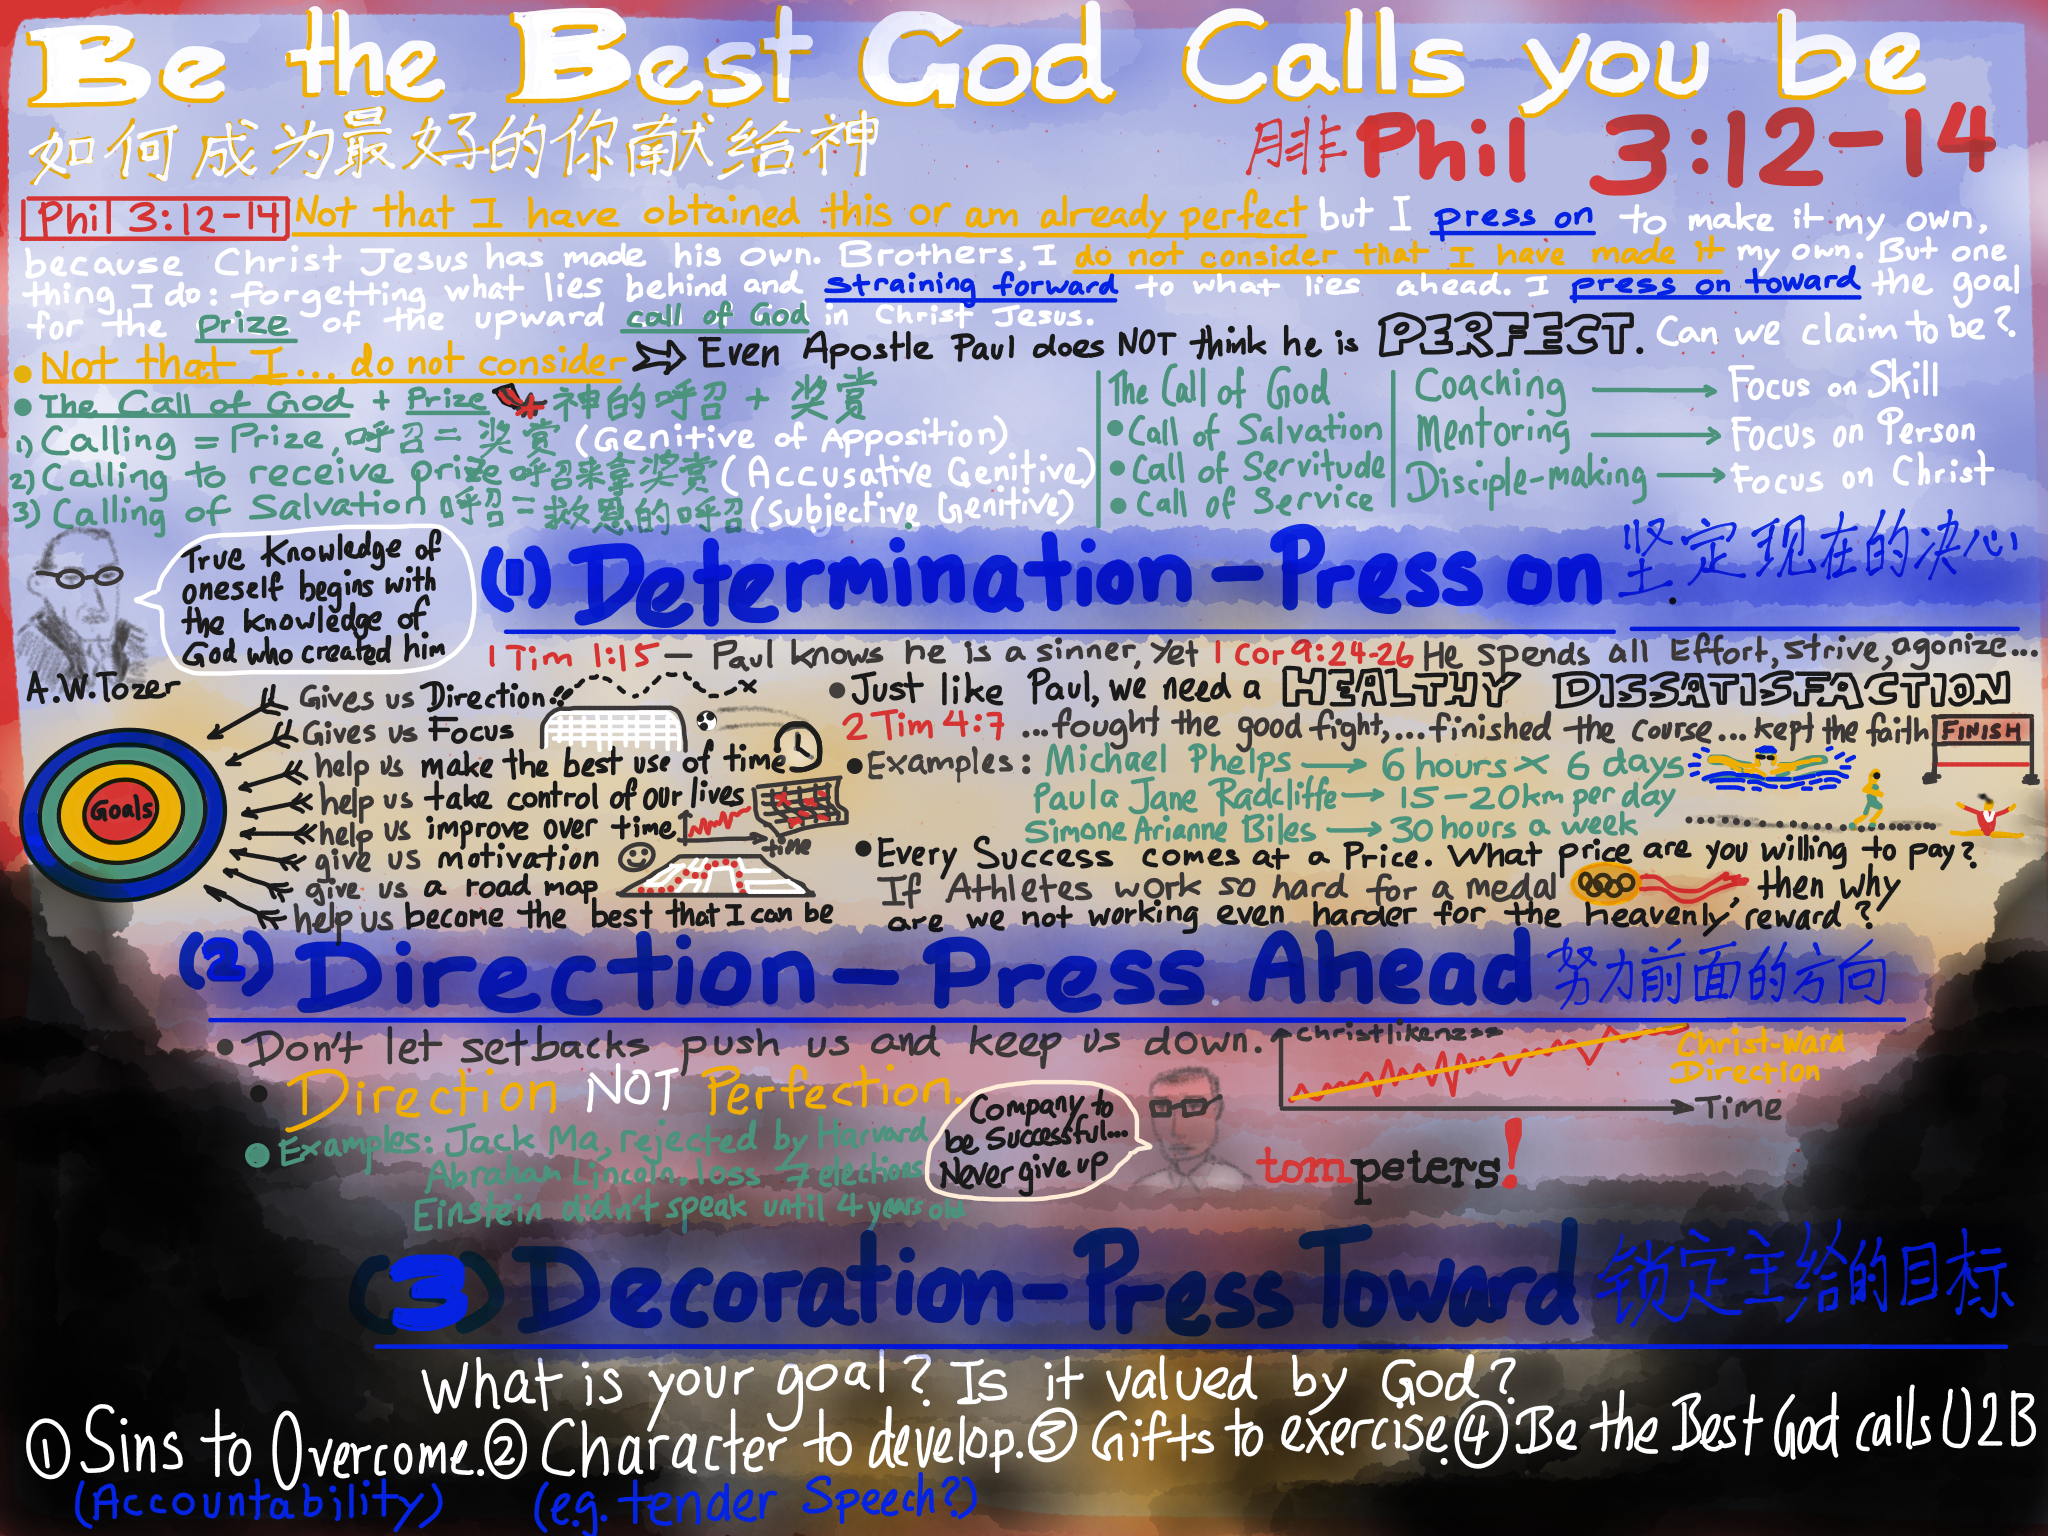 Be the Best God Calls you be
如何成为最好的你献给神
腓 Phil 3:12-14
Phil 3:12-14 Not that I have obtained this or am already perfect but I press on to make it my own,
because Christ Jesus has made his own. Brothers, I do not consider that I have made it my own. But one
thing I do: forgetting what lies behind and straining forward to what lies ahead. I press on toward the goal
for the prize of the upward call of God in Christ Jesus.
• Not that I... do not consider ⇒ Even Apostle Paul does NOT think he is PERFECT. Can we claim to be?
• The Call of God + Prize 神的呼召 + 奖赏
1) Calling = Prize, 呼召 = 奖赏 (Genitive of Apposition)
2) Calling to receive prize 呼召来拿奖赏 (Accusative Genitive)
3) Calling of Salvation 呼召 = 救恩的呼召 (Subjective Genitive)
The Call of God
• Call of Salvation
• Call of Servitude
• Call of Service
Coaching → Focus on Skill
Mentoring → Focus on Person
Disciple-making → Focus on Christ
True Knowledge of
oneself begins with
the knowledge of
God who created him
A.W.Tozer
(1) Determination - Press on 坚定现在的决心
1 Tim 1:15 - Paul knows he is a sinner, yet 1 Cor 9:24-26 He spends all Effort, strive, agonize...
Goals
Gives us Direction
Gives us Focus
help us make the best use of time
help us take control of our lives
help us improve over time
time
give us motivation
give us a road map
help us become the best that I can be
• Just like Paul, we need a HEALTHY DISSATISFACTION
2 Tim 4:7 ...fought the good fight,...finished the course... kept the faith
FINISH
• Examples: Michael Phelps → 6 hours × 6 days
Paula Jane Radcliffe → 15-20km per day
Simone Arianne Biles → 30 hours a week
• Every Success comes at a Price. What price are you willing to pay?
If Athletes work so hard for a medal then why
are we not working even harder for the heavenly reward?
(2) Direction - Press Ahead 努力前面的方向
• Don't let setbacks push us and keep us down.
• Direction NOT Perfection.
• Examples: Jack Ma, rejected by Harvard
Abraham Lincoln, loss 7 elections
Einstein didn't speak until 4 years old
Company to
be Successful...
Never give up
tompeters!
Christlikeness
Christ-ward
Direction
Time
(3) Decoration - Press Toward 锁定主给的目标
What is your goal? Is it valued by God?
① Sins to Overcome. ② Character to develop. ③ Gifts to exercise. ④ Be the Best God calls U2B
(Accountability) (e.g. tender Speech?)